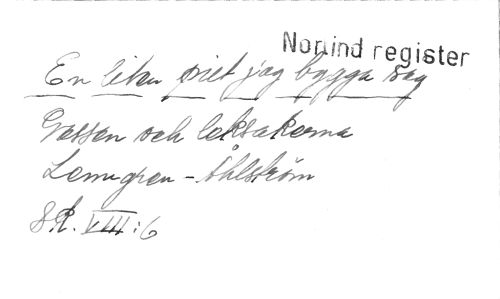 Nonind register
En liten privet jag bygga mig
Gossen och leksakerna
Lemgren-Åhlström
8R. VIII:6